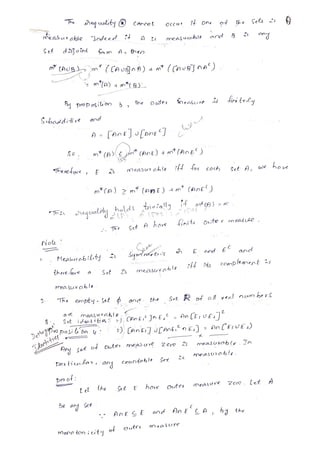 The inequality ⊛ cannot occur if one of the sets is
measurable. Indeed if A is measurable and B is any
set disjoint from A then
m*(A∪B) = m*([A∪B]∩A) + m*([A∪B]∩Aᶜ)
= m*(A) + m*(B).
By proposition 3, the outer measure is finitely
Subadditive and
A = [A∩E] ∪ [A∩Eᶜ]
So m*(A) ≤ m*(A∩E) + m*(A∩Eᶜ)
Therefore, E is measurable iff for each set A, we have
m*(A) ≥ m*(A∩E) + m*(A∩Eᶜ)
This inequality holds trivially if m*(A) = ∞
∴ The set A have finite outer measure.
Note:
Measurability is Symmetric in E and Eᶜ and
therefore a set is measurable iff its complement is
measurable.
2. The empty-set ϕ and the set R of all real numbers
are measurable.
Set identities: 1) [A∩E₁ᶜ]∩E₂ᶜ = A∩[E₁∪E₂]ᶜ
Proposition 4: 2) [A∩E₁]∪[A∩E₁ᶜ∩E₂] = A∩[E₁∪E₂]
Any set of outer measure zero is measurable. In
Particular, any countable set is measurable.
Proof:
Let the set E have outer measure zero. Let A
be any set
∵ A∩E ⊆ E and A∩Eᶜ ⊆ A, by the
monotonicity of outer measure